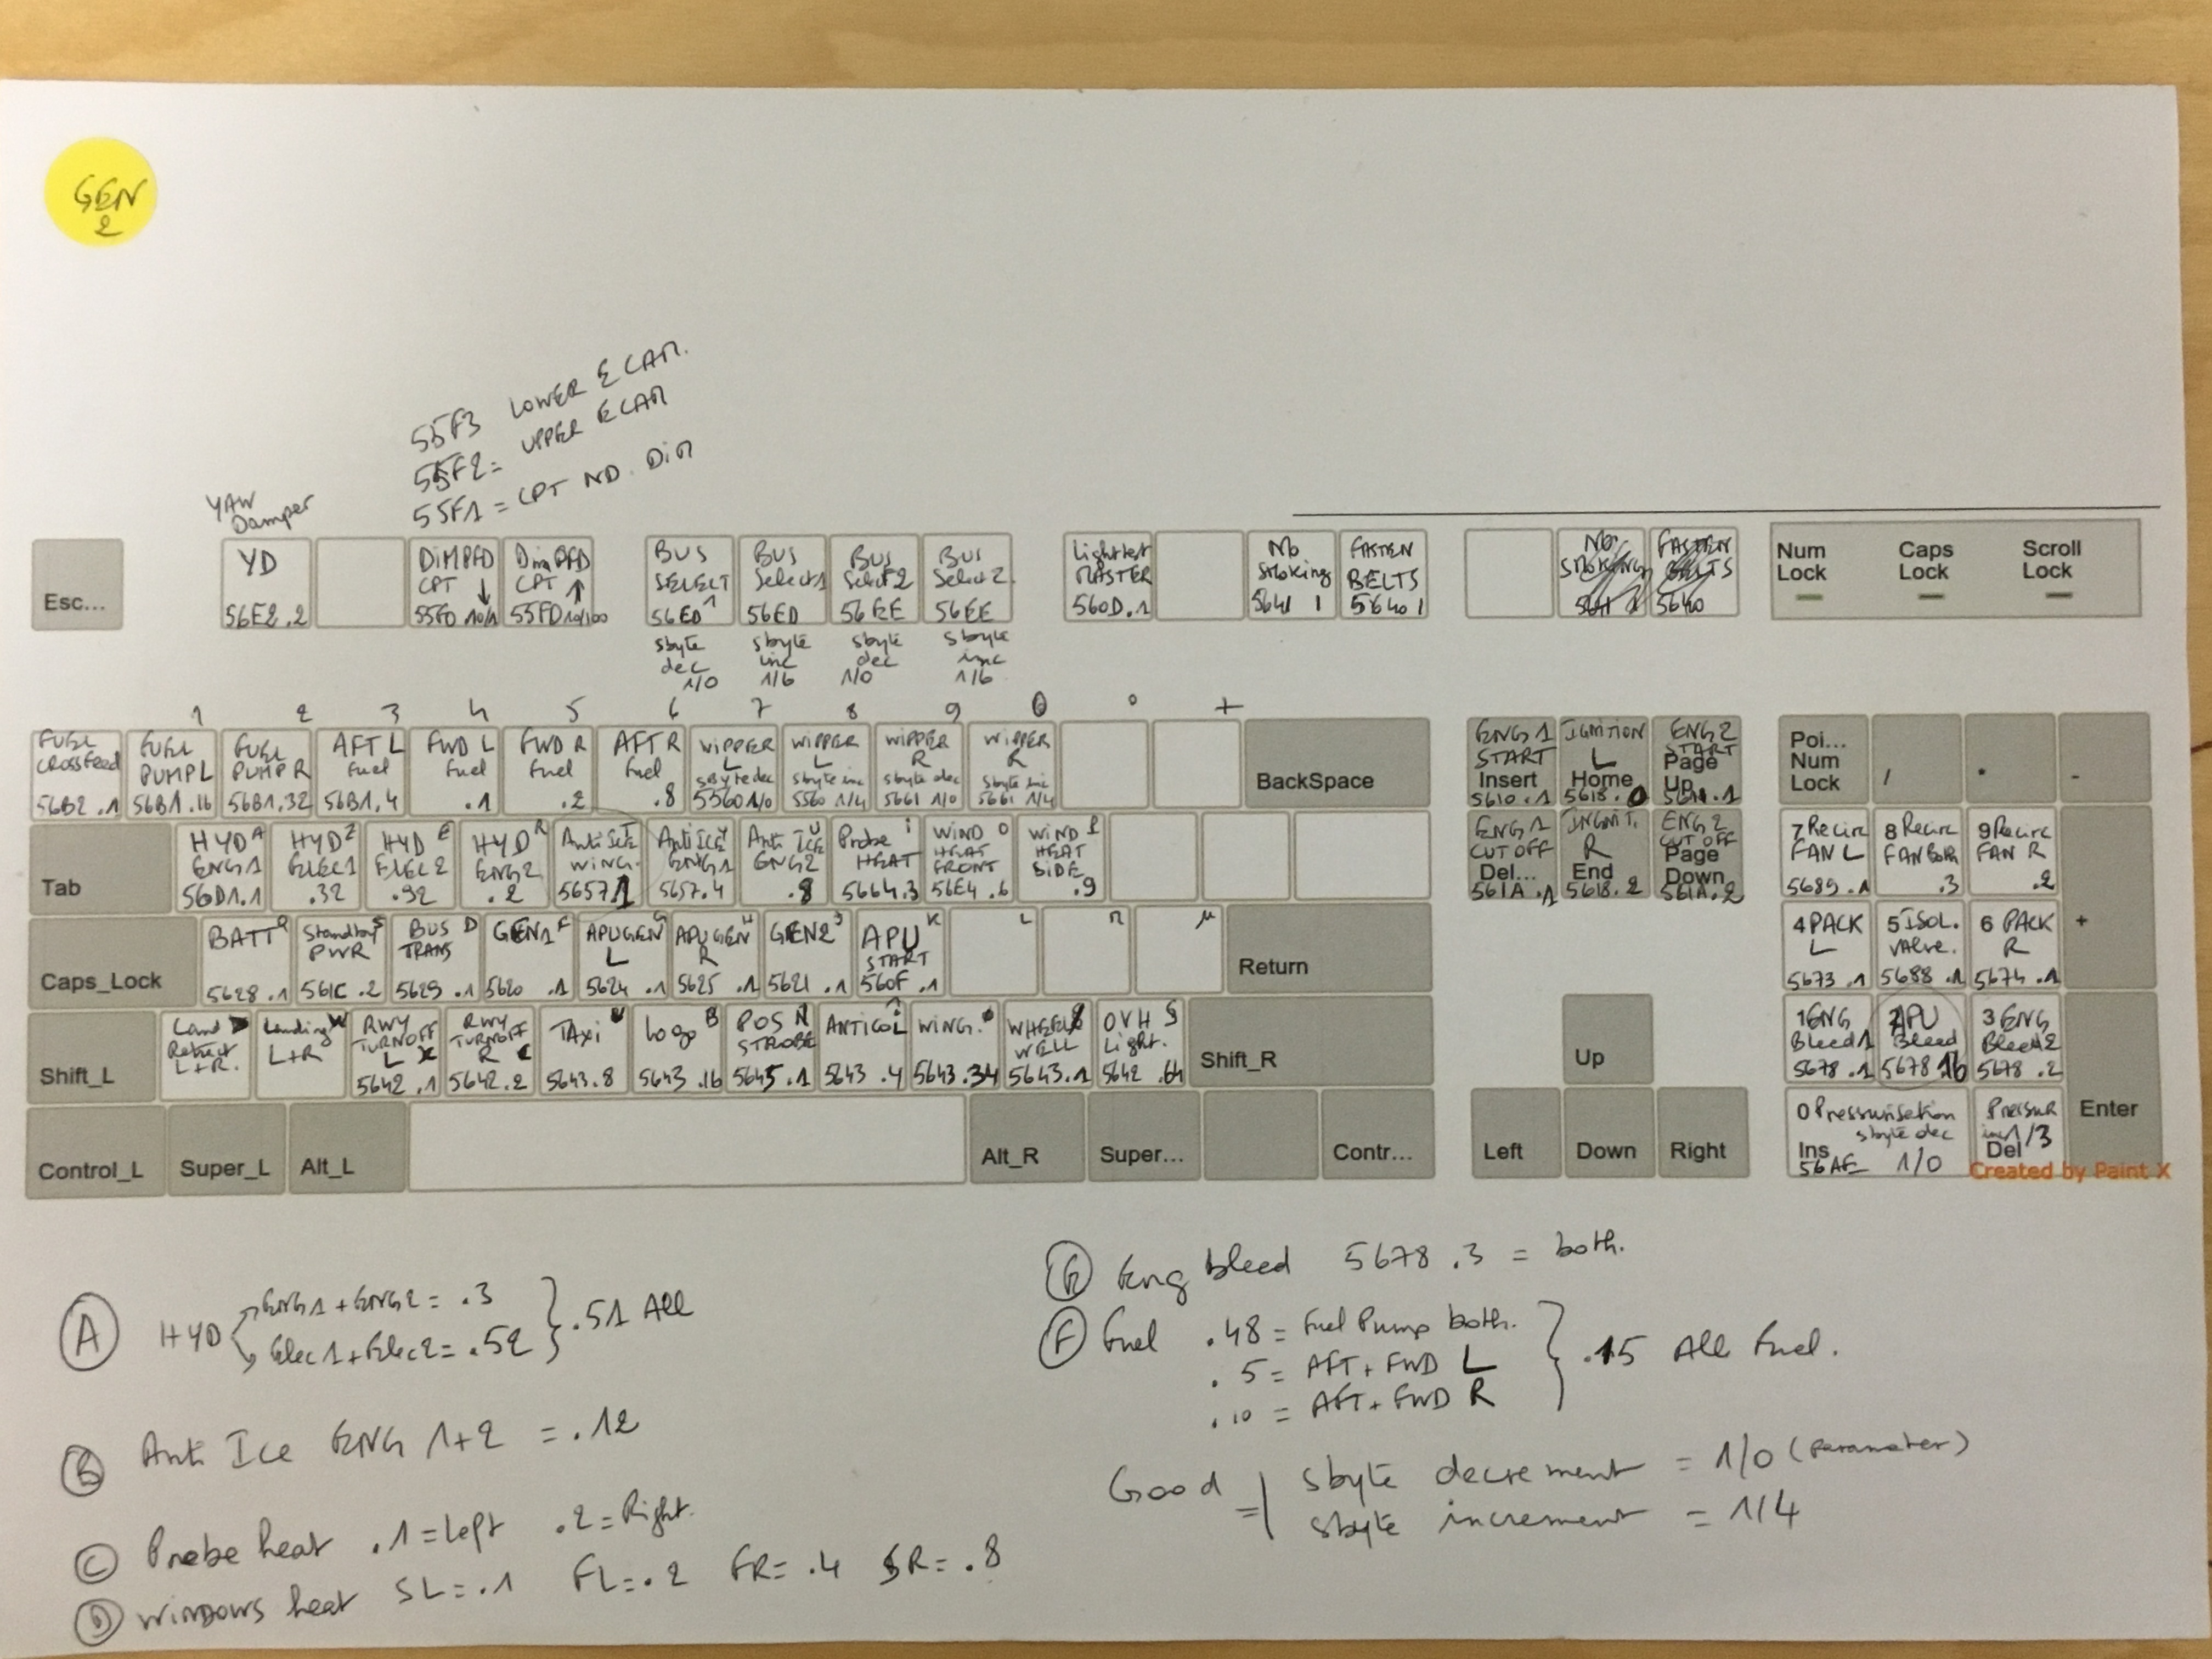 GEN
2
55F3 LOWER ECAM.
55F2= UPPER ECAM
55F1 = CPT ND. DIM
YAW
Damper
Esc...
YD
56E2.2
DIMPFD
CPT ↓
55F0 10/1
Dim PFD
CPT ↑
55FD 10/100
BUS
SELECT
1
56ED
BUS
Select 1
56ED
BUS
Select 2
56EE
BUS
Select 2
56EE
Light test
MASTER
560D.1
No
Smoking
5641 1
FASTEN
BELTS
5640 1
5640
Num
Lock
Caps
Lock
Scroll
Lock
sbyte
dec
1/0
sbyte
inc
1/6
sbyte
dec
1/0
sbyte
inc
1/6
1 2 3 4 5 6 7 8 9 0 ° +
FUEL
CROSSFeed
56B2 .1
FUEL
PUMP L
56B1.16
FUEL
PUMP R
56B1.32
AFT L
fuel
56B1.4
FWD L
fuel
.1
FWD R
fuel
.2
AFT R
fuel
.8
WIPPER
L
sbyte dec
5560 1/0
WIPPER
L
sbyte inc
5560 1/4
WIPPER
R
sbyte dec
5661 1/0
WIPPER
R
sbyte inc
5661 1/4
BackSpace
ENG 1
START
Insert
5610 .1
IGNITION
L
Home
5618.0
ENG 2
START
Page
Up
.1
Poi...
Num
Lock
/
-
Tab
HYD A
ENG1
56D1.1
HYD Z
ELEC1
.32
HYD E
ELEC2
.92
HYD R
ENG2
.2
Anti ICE T
WING.
5657 1
Anti ICE Y
ENG1
5657.4
Anti ICE U
ENG2
.8
Probe i
HEAT
5664.3
WIND O
HEAT
FRONT
56E4 .6
WIND P
HEAT
SIDE
.9
ENG 1
CUT OFF
Del...
561A .1
R
End
5618.2
ENG 2
CUT OFF
Page
Down
561A.2
7 Recirc
FAN L
5689.1
8 Recirc
FAN Both
.3
9 Recirc
FAN R
.2
Caps_Lock
BATT Q
5628 .1
Standby S
PWR
561C .2
BUS D
TRANS
5629 .1
GEN1 F
5620 .1
APU GEN G
L
5624 .1
APU GEN H
R
5625 .1
GEN2 J
5621 .1
APU K
START
560F .1
L
M
µ
Return
4 PACK
L
5673 .1
5 ISOL.
VALVE.
5688 .1
6 PACK
R
5674 .1
+
Shift_L
Land
Retract
L+R.
Landing W
L+R
RWY
TURNOFF
L X
5642 .1
RWY
TURNOFF
R C
5642.2
TAxi V
5643.8
Logo B
5643 .16
POS N
STROBE
5645.1
ANTICOL
5643 .4
WING.
5643.34
WHEEL
WELL
5643.1
OVH §
Light.
5642 .64
Shift_R
Up
1 ENG
Bleed 1
5678 .1
2 APU
Bleed
5678 16
3 ENG
Bleed 2
5678 .2
Control_L
Super_L
Alt_L
Alt_R
Super...
Contr...
Left
Down
Right
0 Pressurisation
sbyte dec
Ins
56AE 1/0
Pressur
inc 1/3
Del
Enter
Created by Paint X
A HYD ENG1 + ENG2 = .3
Elec1+Elec2 = .52 } .51 All
B Anti Ice ENG 1+2 = .12
C Probe heat .1 = Left .2 = Right.
D WINDOWS heat SL = .1 FL = .2 FR = .4 SR = .8
E Eng bleed 5678 .3 = both.
F Fuel .48 = Fuel Pump both.
. 5 = AFT + FWD L } .15 All Fuel.
. 10 = AFT + FWD R
Good = sbyte decrement = 1/0 (parameter)
sbyte increment = 1/4